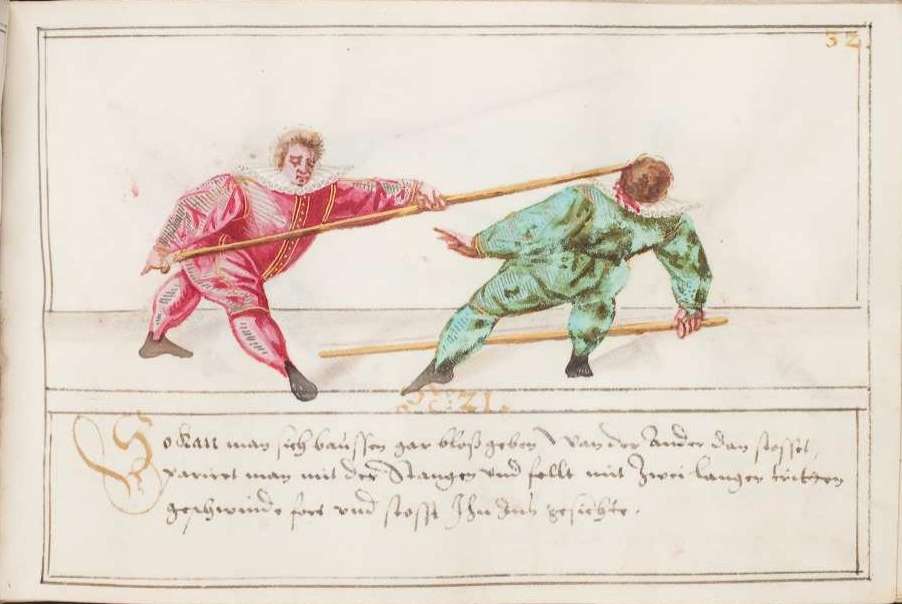 32.
No: 21.
So kan man sich baussen gar bloß geben / wan der Ander dan stosset,
pariret man mit der Stangen und fellt mit zwei langen tritten
geschwinde fort und stosst Ihn ins gesichte.